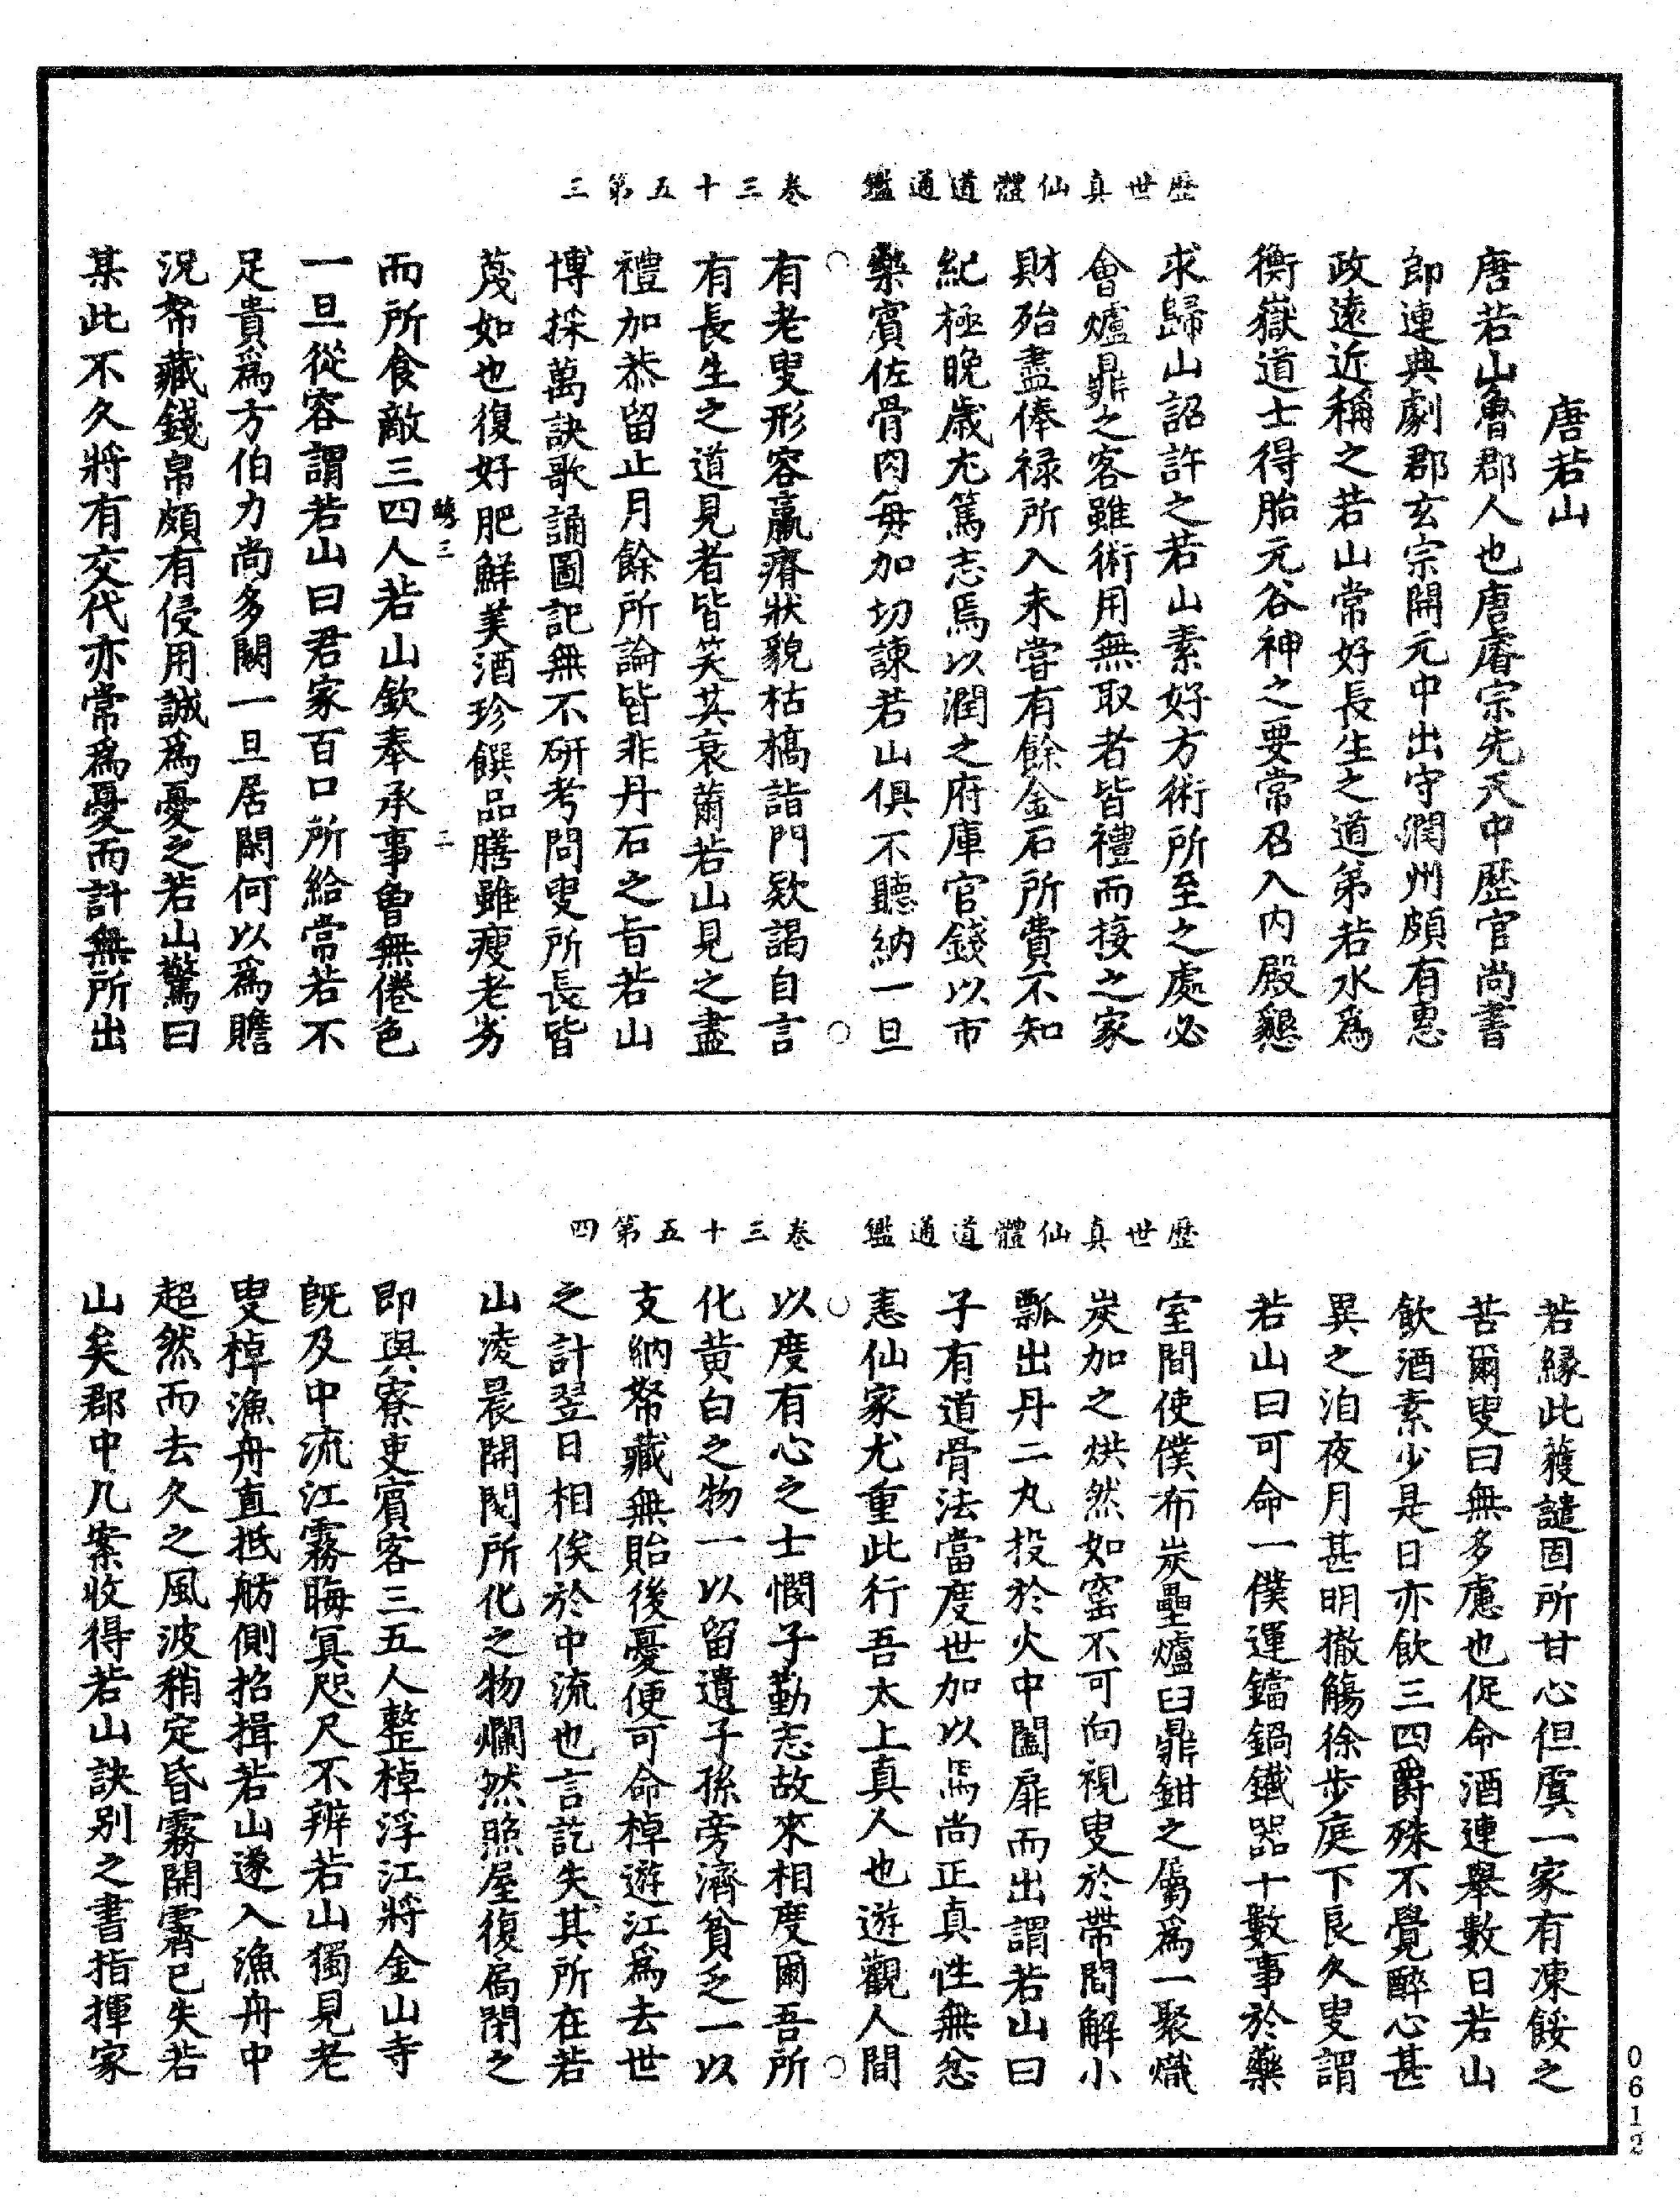 歷世真仙體道通鑑　卷三十五第三
唐若山
唐若山魯郡人也唐睿宗先天中歷官尚書
郎連典劇郡玄宗開元中出守潤州頗有惠
政遠近稱之若山常好長生之道弟若水為
衡嶽道士得胎元谷神之要常召入內殿懇
求歸山詔許之若山素好方術所至之處必
會爐鼎之客雖術用無取者皆禮而接之家
財殆盡俸祿所入未嘗有餘金石所費不知
紀極晚歲尤篤志焉以潤之府庫官錢以市
藥賓佐骨肉每加切諫若山俱不聽納一旦
○　○
有老叟形容羸瘠狀貌枯槁詣門欵謁自言
有長生之道見者皆笑其衰薾若山見之盡
禮加恭留止月餘所論皆非丹石之旨若山
博採萬訣歌誦圖記無不研考問叟所長皆
蔑如也復好肥鮮美酒珍饌品膳雖瘦老劣
三　二
而所食敵三四人若山欽奉承事曾無倦色
一旦從容謂若山曰君家百口所給常若不
足貴為方伯力尚多闕一旦居閑何以為贍
況帑藏錢帛頗有侵用誠為憂之若山驚曰
某此不久將有交代亦常為憂而計無所出
歷世真仙體道通鑑　卷三十五第四
若緣此獲譴固所甘心但虞一家有凍餒之
苦爾叟曰無多慮也促命酒連舉數日若山
飲酒素少是日亦飲三四爵殊不覺醉心甚
異之洎夜月甚明撤觴徐步庭下良久叟謂
若山曰可命一僕運鐺鍋鐵器十數事於藥
室間使僕布炭壘爐臼鼎鉗之屬為一聚熾
炭加之烘然如窰不可向視叟於帶間解小
瓢出丹二丸投於火中闔扉而出謂若山曰
子有道骨法當度世加以焉尚正真性無忿
恚仙家尤重此行吾太上真人也遊觀人間
○　○
以度有心之士憫子勤志故來相度爾吾所
化黃白之物一以留遺子孫旁濟貧乏一以
支納帑藏無貽後憂便可命棹遊江為去世
之計翌日相俟於中流也言訖失其所在若
山凌晨開閱所化之物爛然照屋復扃閉之
即與寮吏賓客三五人整棹浮江將金山寺
既及中流江霧晦冥咫尺不辨若山獨見老
叟棹漁舟直抵舫側招揖若山遂入漁舟中
超然而去久之風波稍定昏霧開霽已失若
山矣郡中几案收得若山訣別之書指揮家
0612